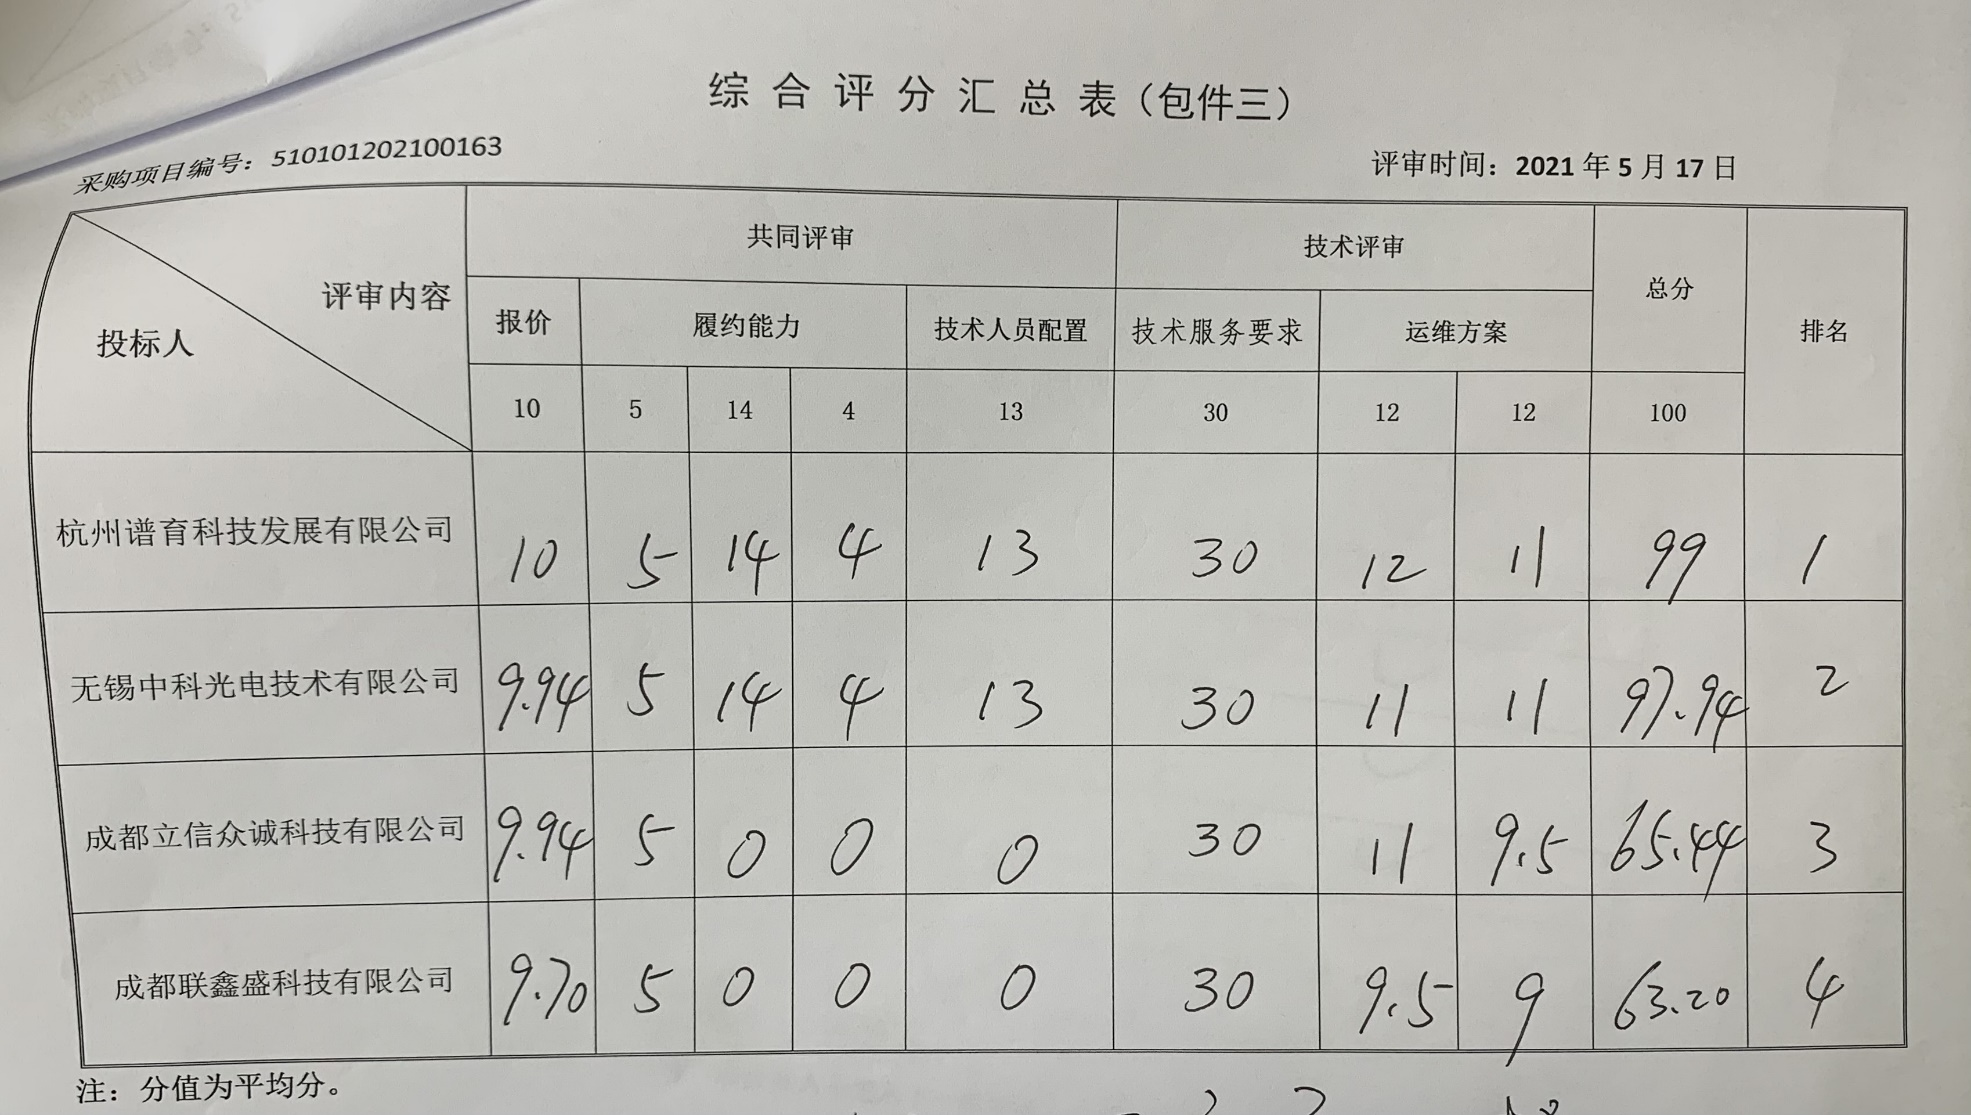 综合评分汇总表（包件三）
采购项目编号：510101202100163
评审时间：2021年5月17日
评审内容
投标人
共同评审 技术评审 总分 排名
报价 履约能力 技术人员配置 技术服务要求 运维方案
10 5 14 4 13 30 12 12 100
杭州谱育科技发展有限公司 10 5 14 4 13 30 12 11 99 1
无锡中科光电技术有限公司 9.94 5 14 4 13 30 11 11 97.94 2
成都立信众诚科技有限公司 9.94 5 0 0 0 30 11 9.5 65.44 3
成都联鑫盛科技有限公司 9.70 5 0 0 0 30 9.5 9 63.20 4
注：分值为平均分。